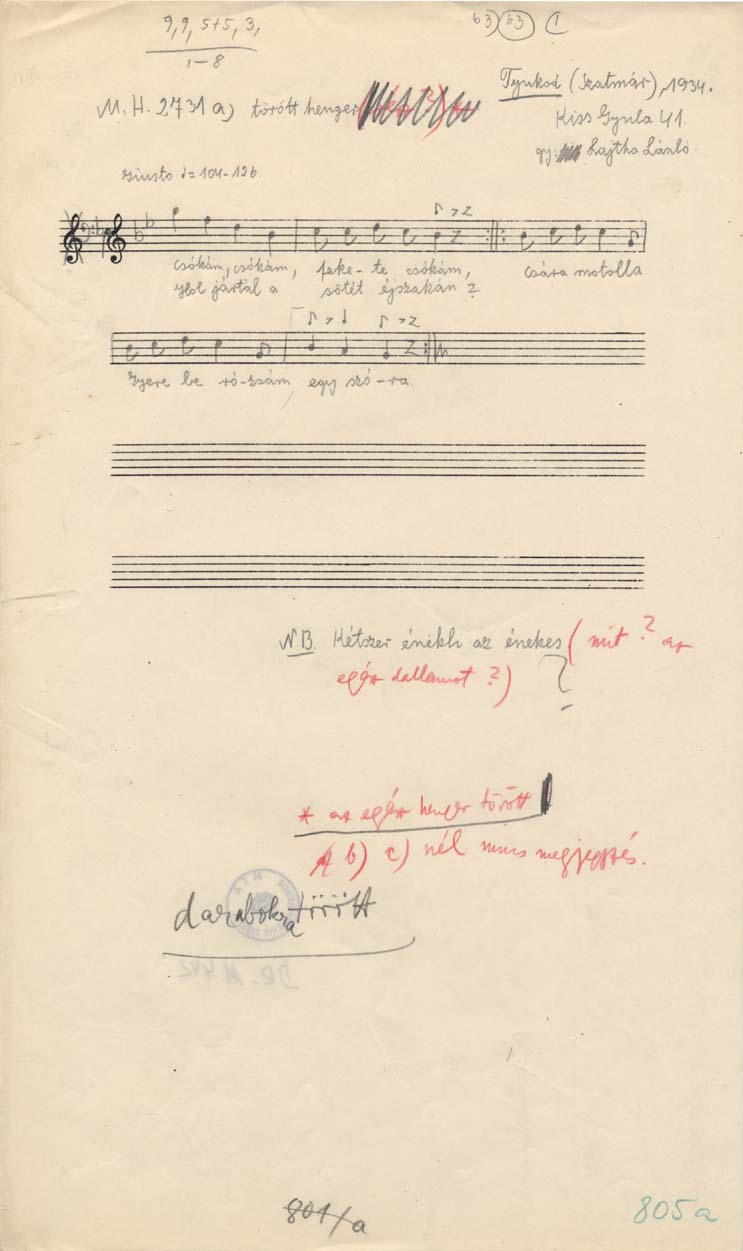 9, 9, 5+5, 3,
1-8
b3) (b3) (1
M. H. 2731 a) törött henger
Tyukod (Szatmár), 1934.
Kiss Gyula 41.
gy: Lajtha László.
Giusto = 104-126
csókám, csókám, feke-te csókám, csára motolla
Hol jártál a sötét éjszakán?
Gyere be ró-zsám, egy szó-ra.
NB. Kétszer énekli az énekes (mit? az
egész dallamot?) ?
* az egész henger törött
b) c) nél nincs megjegyzés.
darabokra törött
801/a
805a